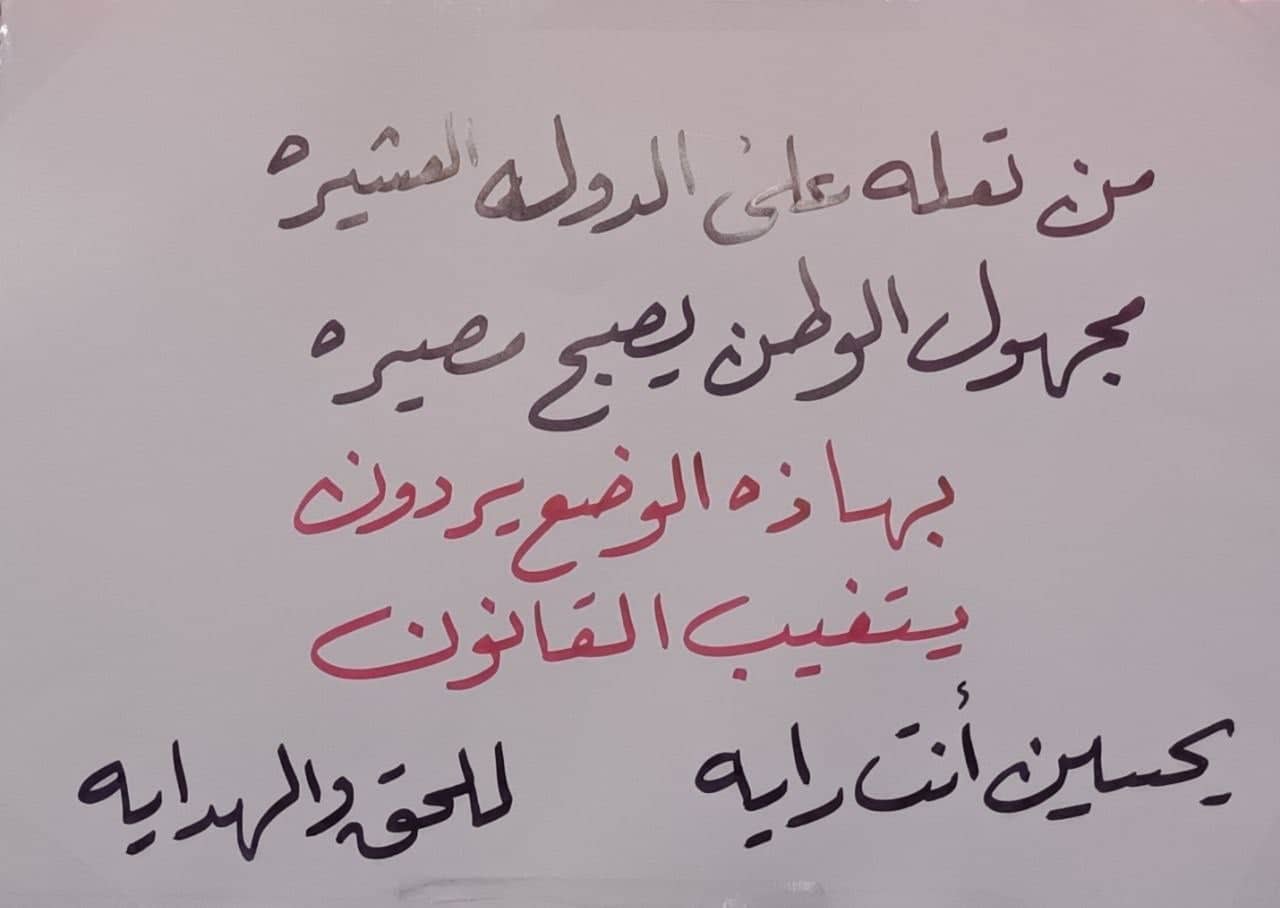 من تعله على الدوله العشيره
مجهول الوطن يصبح مصيره
بهاذه الوضع يردون
يتغيب القانون
يحسين أنت رايه للحق والهدايه